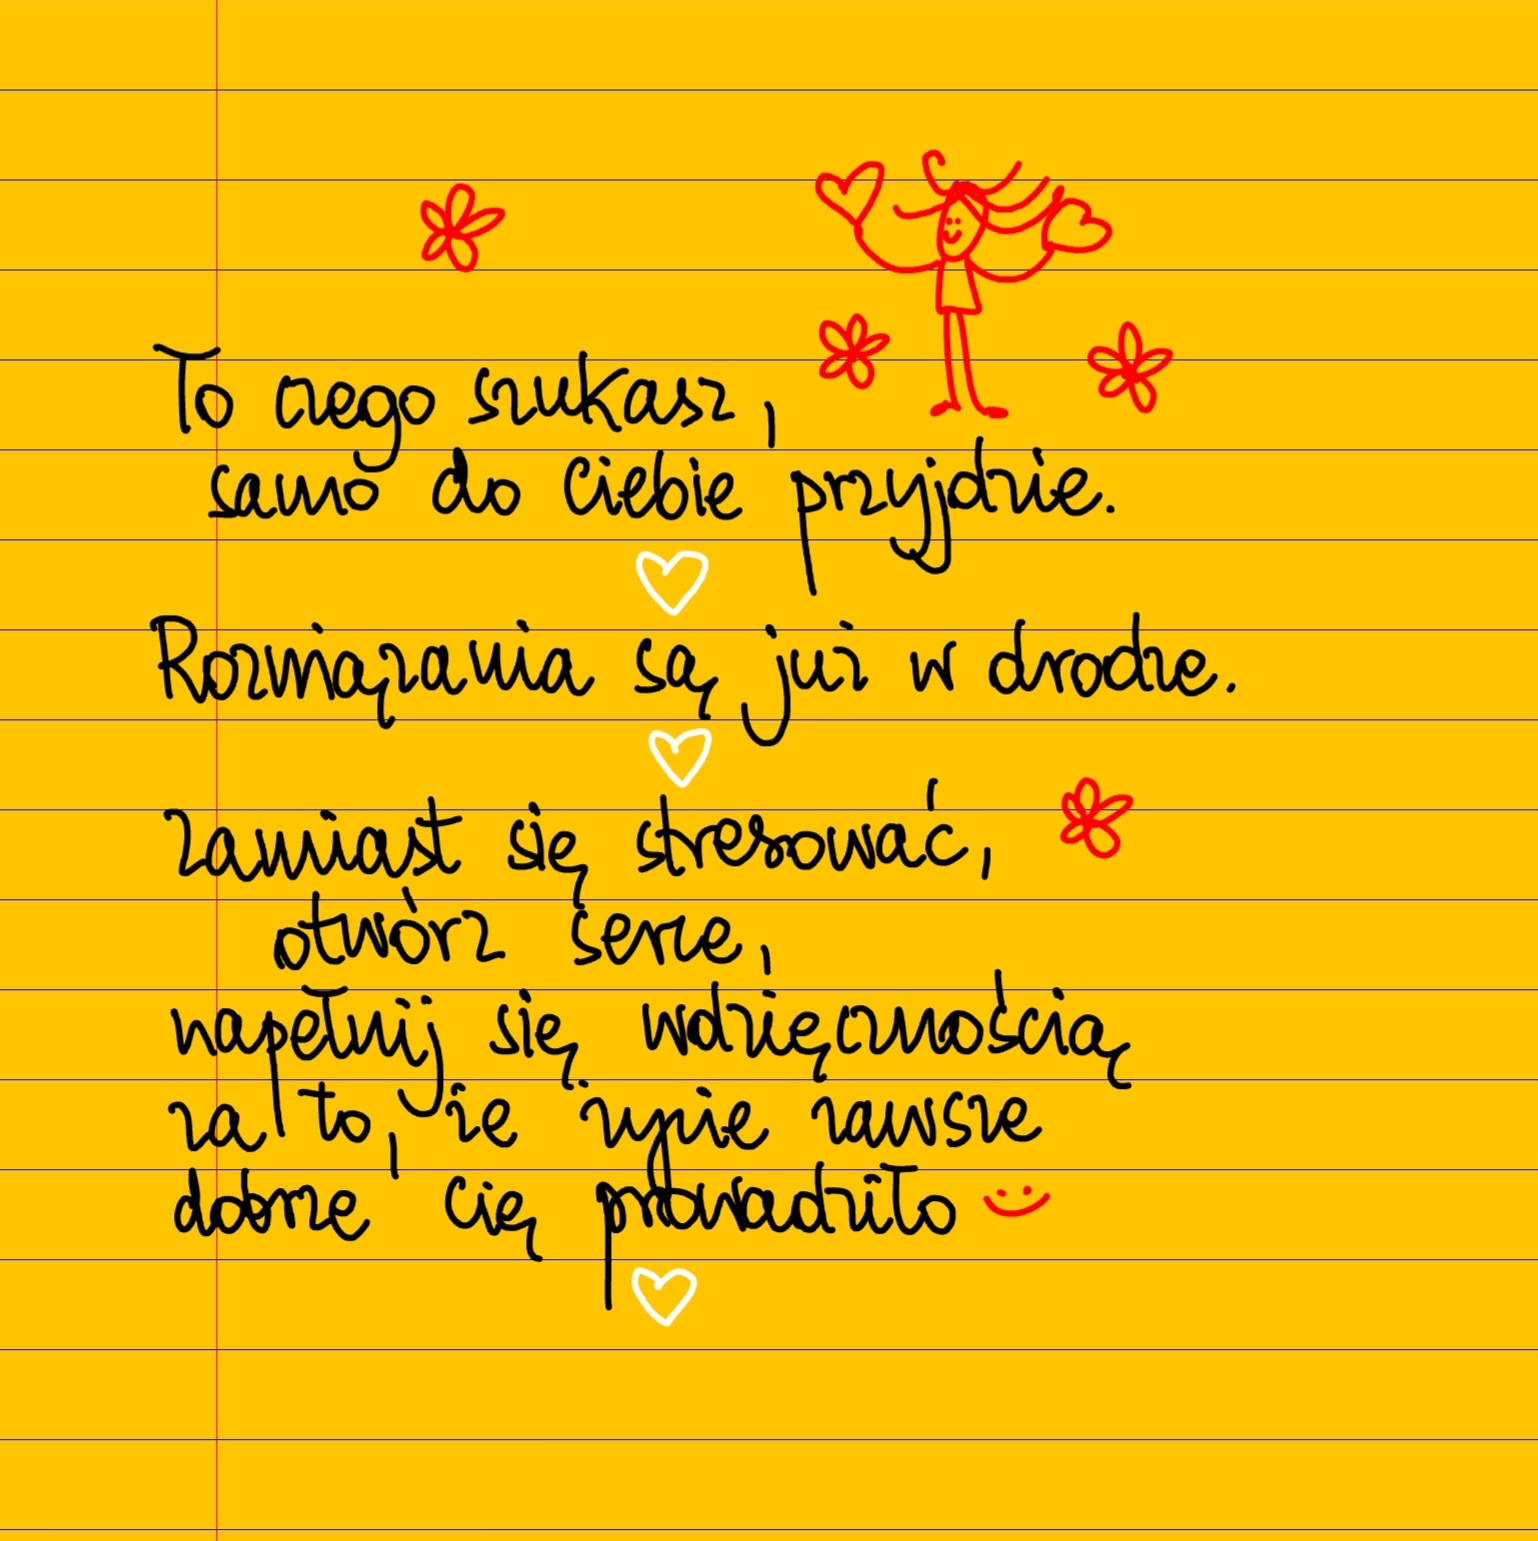 To czego szukasz,
samo do Ciebie przyjdzie.
Rozwiązania są już w drodze.
Zamiast się stresować,
otwórz serce,
napełnij się wdzięcznością
za to, że życie zawsze
dobrze Cię prowadziło